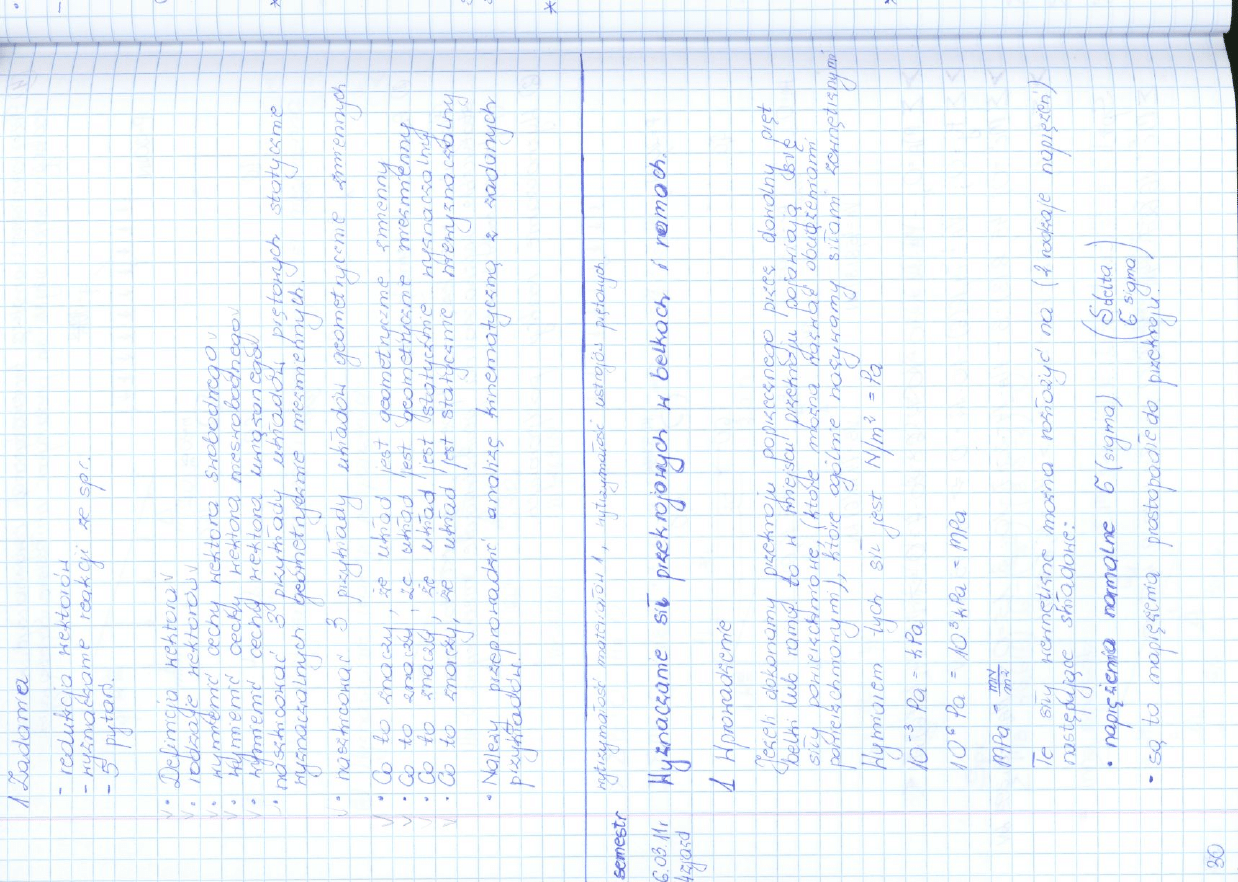 1 Zadania
- redukcja wektorów
- wyznaczanie reakcji ze spr.
- 5 pytań.
v • Definicja wektora v
v • rodzaje wektorów v
v • wymienić cechy wektora swobodnego v
v • wymienić cechy wektora nieswobodnego v
v • wymienić cechy wektora związanego v
v • naszkicować 3 przykłady układów prętowych statycznie
wyznaczalnych geometrycznie niezmiennych.
v • naszkicować 3 przykłady układów geometrycznie zmiennych
v • Co to znaczy, że układ jest geometrycznie zmienny
v • Co to znaczy, że układ jest geometrycznie niezmienny
v • Co to znaczy, że układ jest statycznie wyznaczalny
v • Co to znaczy, że układ jest statycznie niewyznaczalny
• Należy przeprowadzić analizę kinematyczną z zadanych
przykładów!
semestr wytrzymałość materiałów 1, wytrzymałość ustrojów prętowych.
6.03.11r
zjazd
Wyznaczanie sił przekrojowych w belkach i ramach.
1 Wprowadzenie
Jeżeli dokonamy przekroju poprzecznego przez dowolny pręt
belki lub ramy to w miejscu przekroju pojawiają się
siły powierzchniowe, (które można nazwać obciążeniami
powierzchniowymi), które ogólnie nazywamy siłami wewnętrznymi
Wymiarem tych sił jest N/m² = Pa
10⁻³ Pa = kPa
10⁶ Pa = 10³ kPa = MPa
MPa = MN/m²
Te siły wewnętrzne można rozłożyć na (2 rodzaje naprężeń)
następujące składowe:
• naprężenia normalne σ (sigma) (δ delta
σ sigma)
- są to naprężenia prostopadłe do przekroju.
30